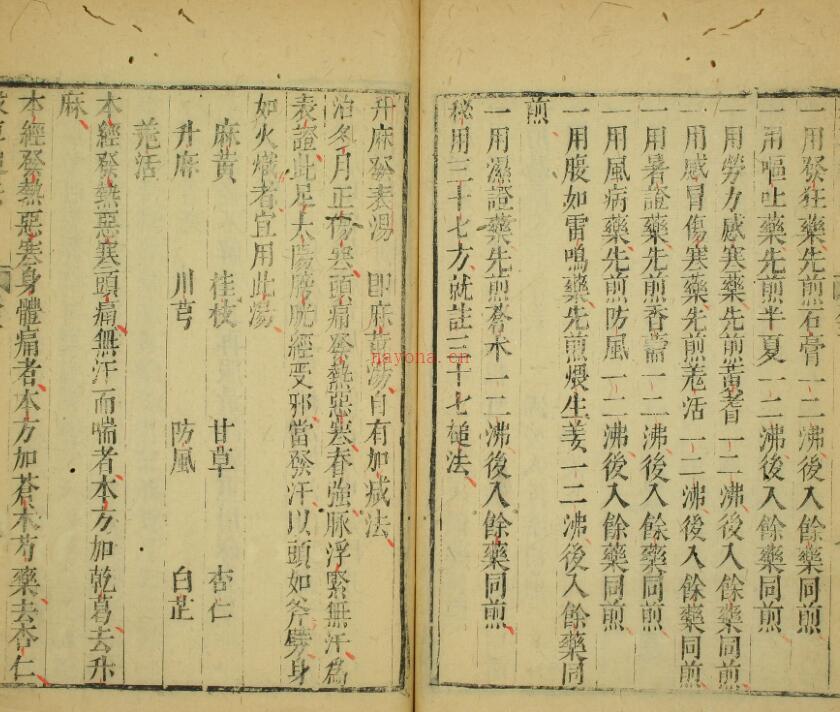 一用發狂藥先煎石膏一二沸後入餘藥同煎
一用嘔吐藥先煎半夏一二沸後入餘藥同煎
一用勞力感寒藥先煎黃耆一二沸後入餘藥同煎
一用感冒傷寒藥先煎羗活一二沸後入餘藥同煎
一用暑證藥先煎香薷一二沸後入餘藥同煎
一用風病藥先煎防風一二沸後入餘藥同煎
一用腹如雷鳴藥先煎煨生姜一二沸後入餘藥同
煎
一用濕證藥先煎蒼朮一二沸後入餘藥同煎
秘用三十七方就註三十七槌法
升麻發表湯 即麻黃湯自有加減法
治冬月正傷寒頭痛發熱惡寒脊強脉浮緊無汗為
表證此足太陽膀胱經受邪當發汗以頭如斧劈身
如火熾者宜用此湯
麻黃 桂枝 甘草 杏仁
升麻 川芎 防風 白芷
羗活
本經發熱惡寒頭痛無汗而喘者本方加乾葛去升
麻
本經發熱惡寒身體痛者本方加蒼朮芍藥去杏仁
nayona.cn